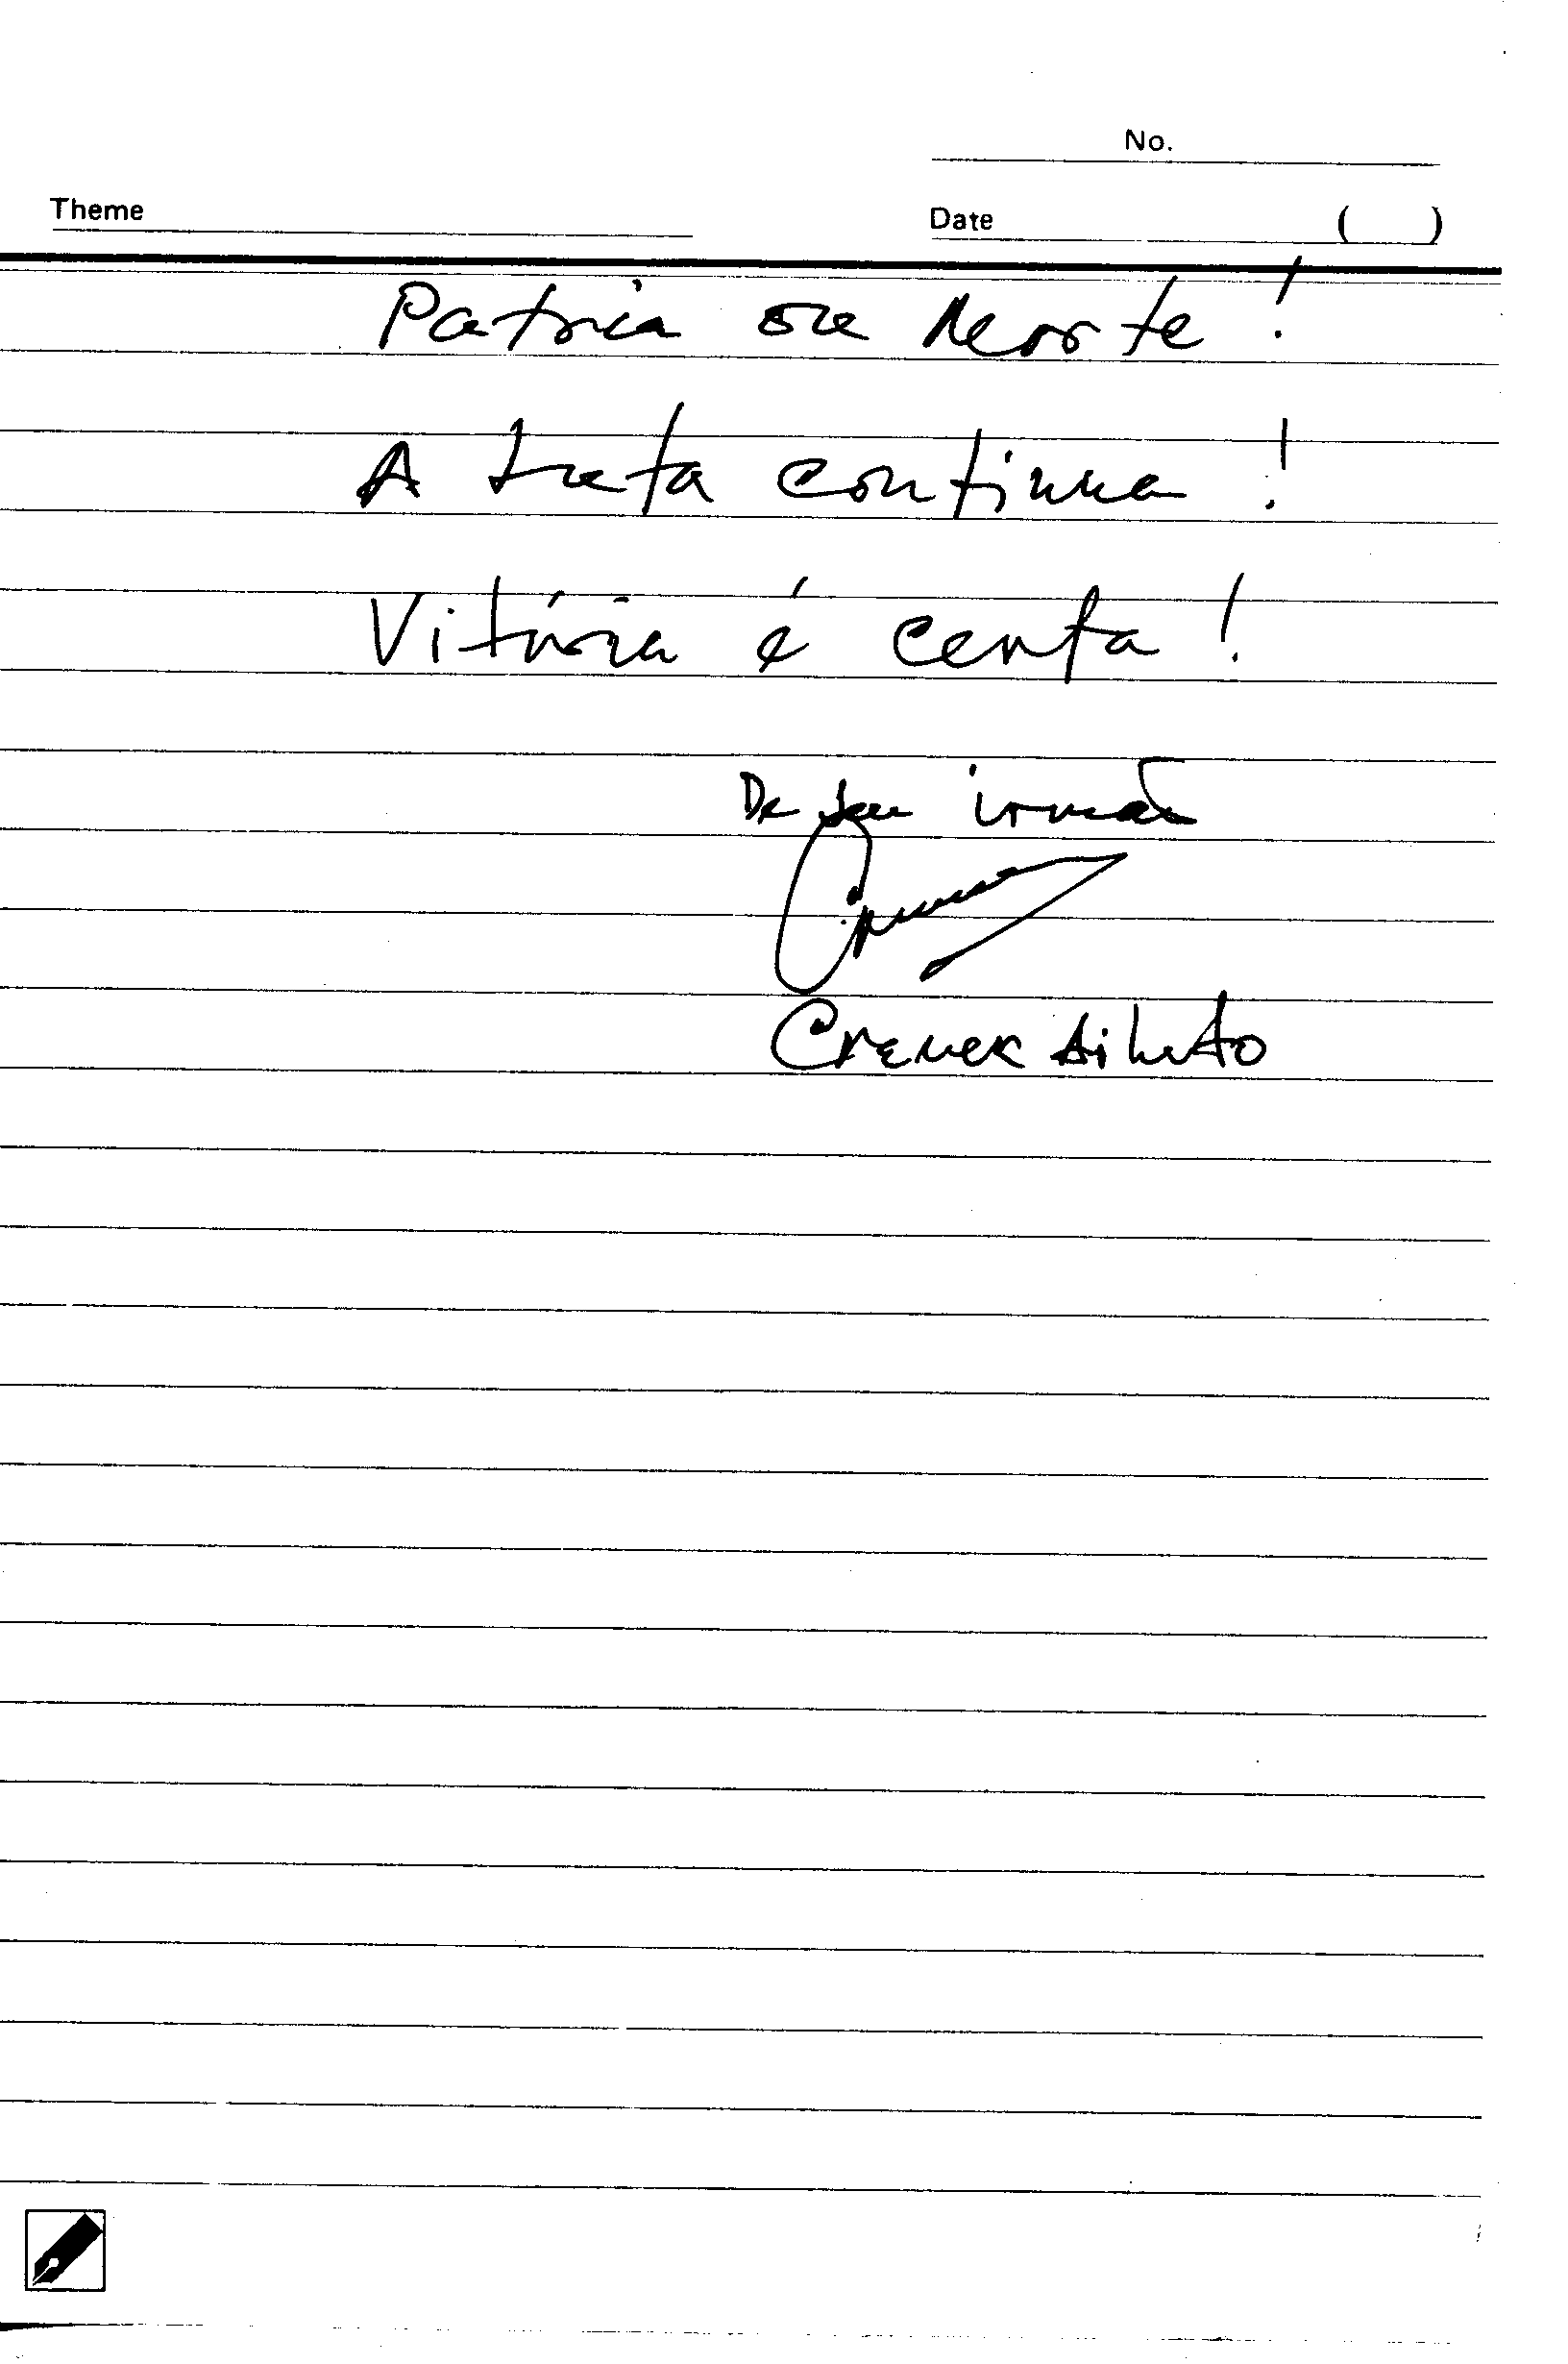 No.
Theme
Date ( )
Patria ou Morte!
A luta continua!
Vitória é certa!
De seu irmão